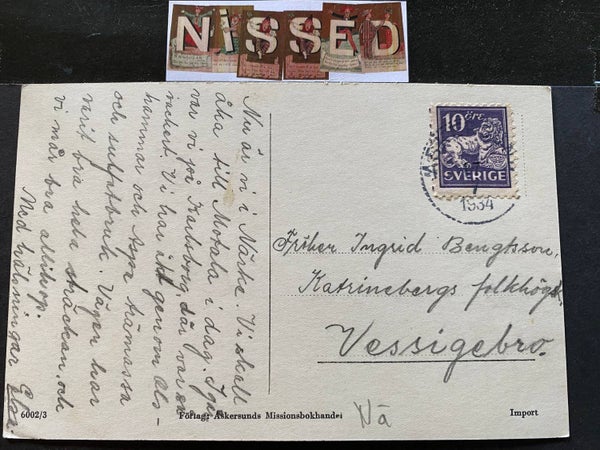 NISSED
Nu är vi i Närke. Vi skall
åka till Motala i dag. Igår
var vi på Karlsborg, där var så
vackert. Vi har åkt genom Ols-
hammar och Aspa hamissa
och sulfatbruk. Vägen har
varit bra hela sträckan, och
vi mår bra allihop.
Med hälsningar Elsa.
10 ÖRE
SVERIGE
1934
Fröken Ingrid Bengtsson,
Katrinebergs folkhögs.
Vessigebro.
6002/3
Förlag: Askersunds Missionsbokhandel
Nä
Import